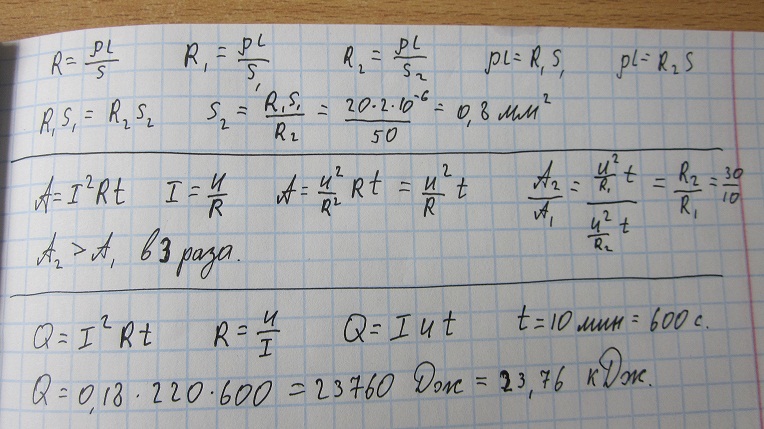 R = ρL/S   R₁ = ρL/S₁   R₂ = ρL/S₂   ρL = R₁S₁   ρL = R₂S
R₁S₁ = R₂S₂   S₂ = R₁S₁/R₂ = 20·2·10⁻⁶/50 = 0,8 мм²
A = I²Rt   I = u/R   A = u²/R² Rt = u²/R t   A₂/A₁ = (u²/R₁ t)/(u²/R₂ t) = R₂/R₁ = 30/10
A₂ > A₁ в 3 раза.
Q = I²Rt   R = u/I   Q = Iut   t = 10 мин = 600 с.
Q = 0,18·220·600 = 23760 Дж = 23,76 кДж.